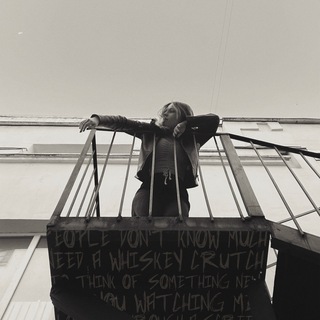 EOPLE DON'T KNOW MUCH
EED A WHISKEY CRUTCH
THINK OF SOMETHING NE
YOU WATCHING M
THROUGH A